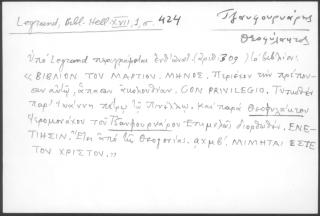 Legrand, Bibl. Hell. XVII, 1, σ. 424
Τζανφουρνάρης
Θεοφύλακτος
Ὑπὸ Legrand περιγράφεται ἐνθ' ἀνωτ. (ἀριθ. 309) τὸ βιβλίον:
« ΒΙΒΛΙΟΝ ΤΟΥ ΜΑΡΤΙΟΥ ΜΗΝΟΣ. Περιέχον τὴν πρέπου-
σαν αὐτῷ, ἅπασαν ἀκολουθίαν. CON PRIVILEGIO. Τυπωθὲν
παρ' Ἰωάννῃ Πέτρῳ τῷ Πινέλλῳ. Καὶ παρὰ Θεοφυλάκτου
Ἱερομονάχου τοῦ Τζανφουρνάρου Ἐπιμελῶς διορθωθέν. ΕΝΕ-
ΤΙΗΣΙΝ. Ἔτει ἀπὸ τῆς Θεογονίας. αχμβ'. ΜΙΜΗΤΑΙ ΕΣΤΕ
ΤΟΥ ΧΡΙΣΤΟΥ. »